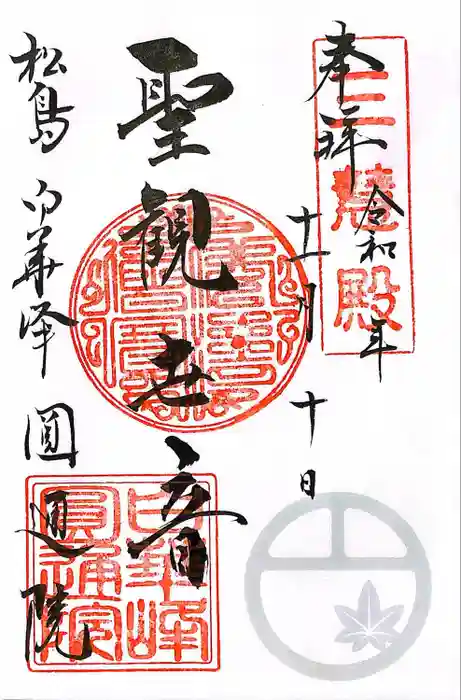 奉拝
三慧殿
令和年
十一月十日
聖観世音
松島 白華峰 圓通院
白華峰
圓通院